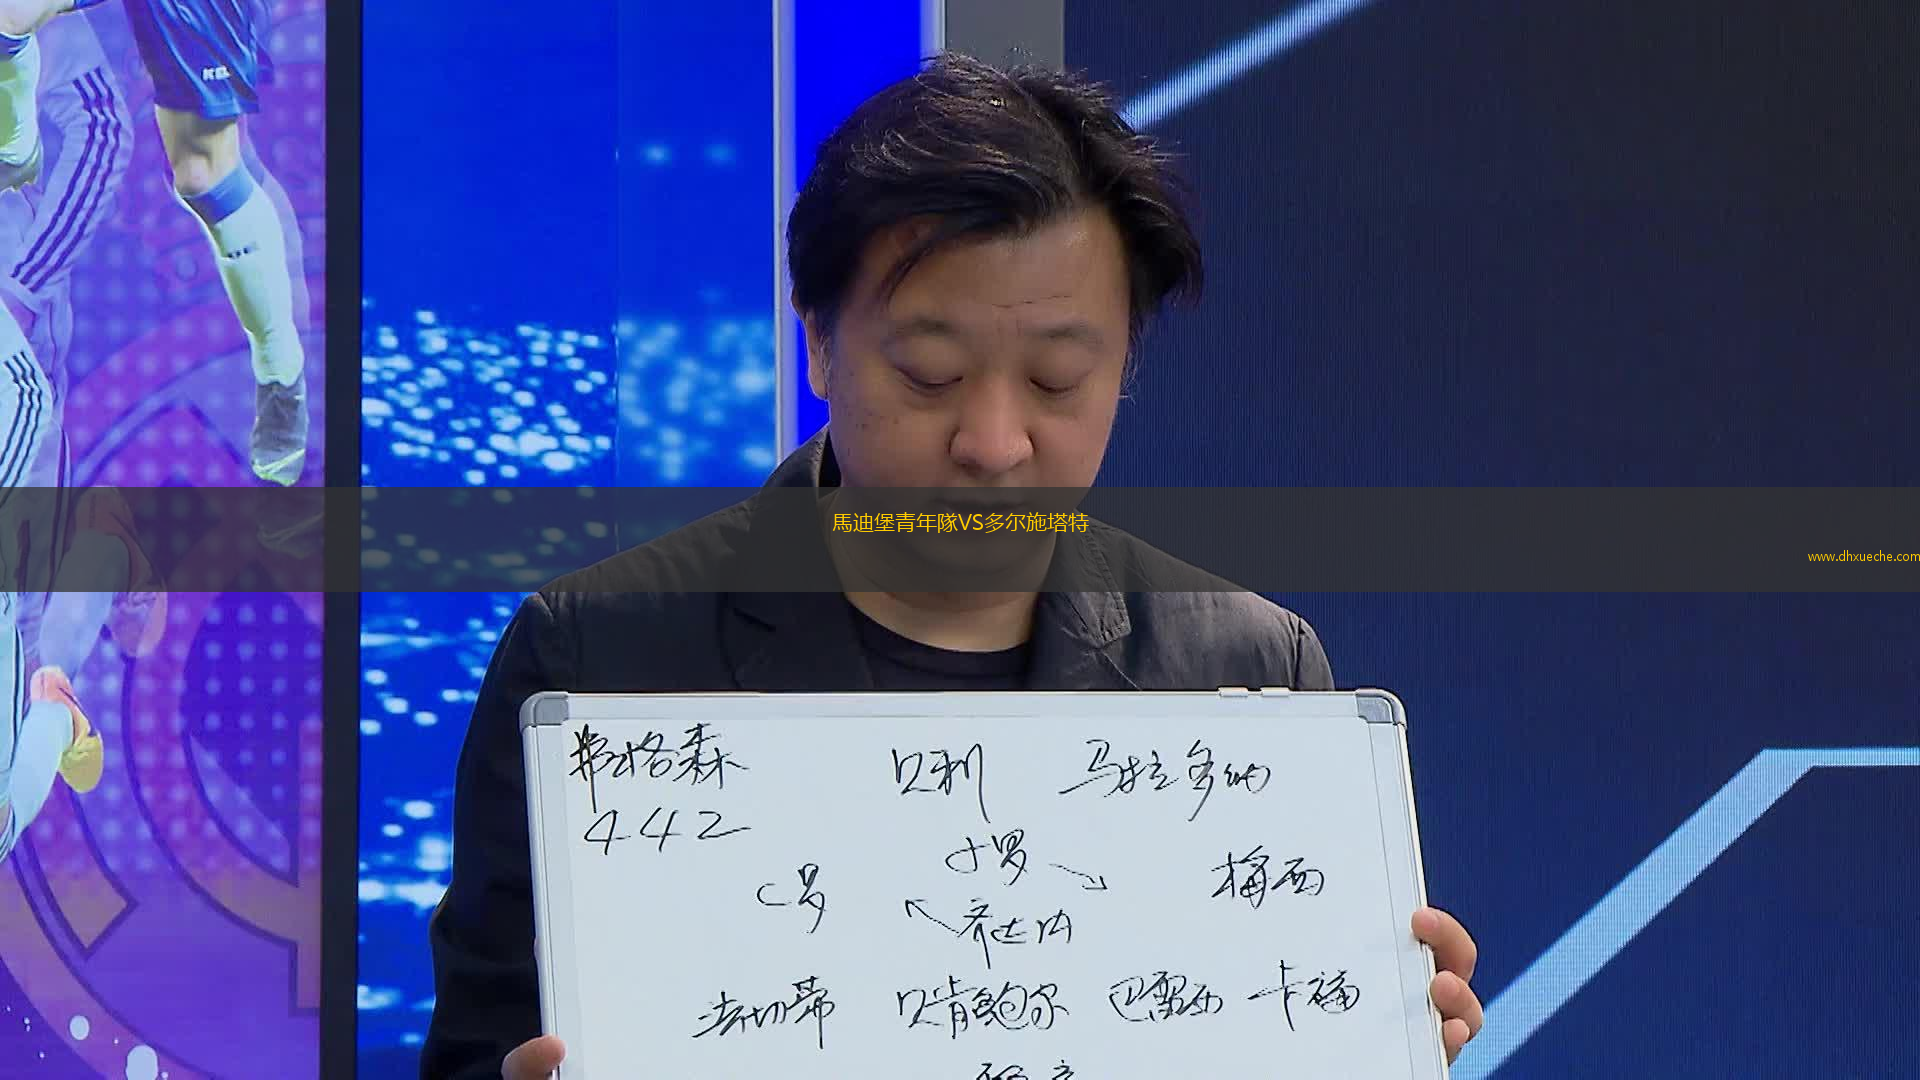 KEL
馬迪堡青年隊VS多尔施塔特
www.dhxueche.com
弗格森 贝利 马拉多纳
442
小罗
C罗 梅西
齐达内
法切蒂 贝肯鲍尔 巴雷西 卡福